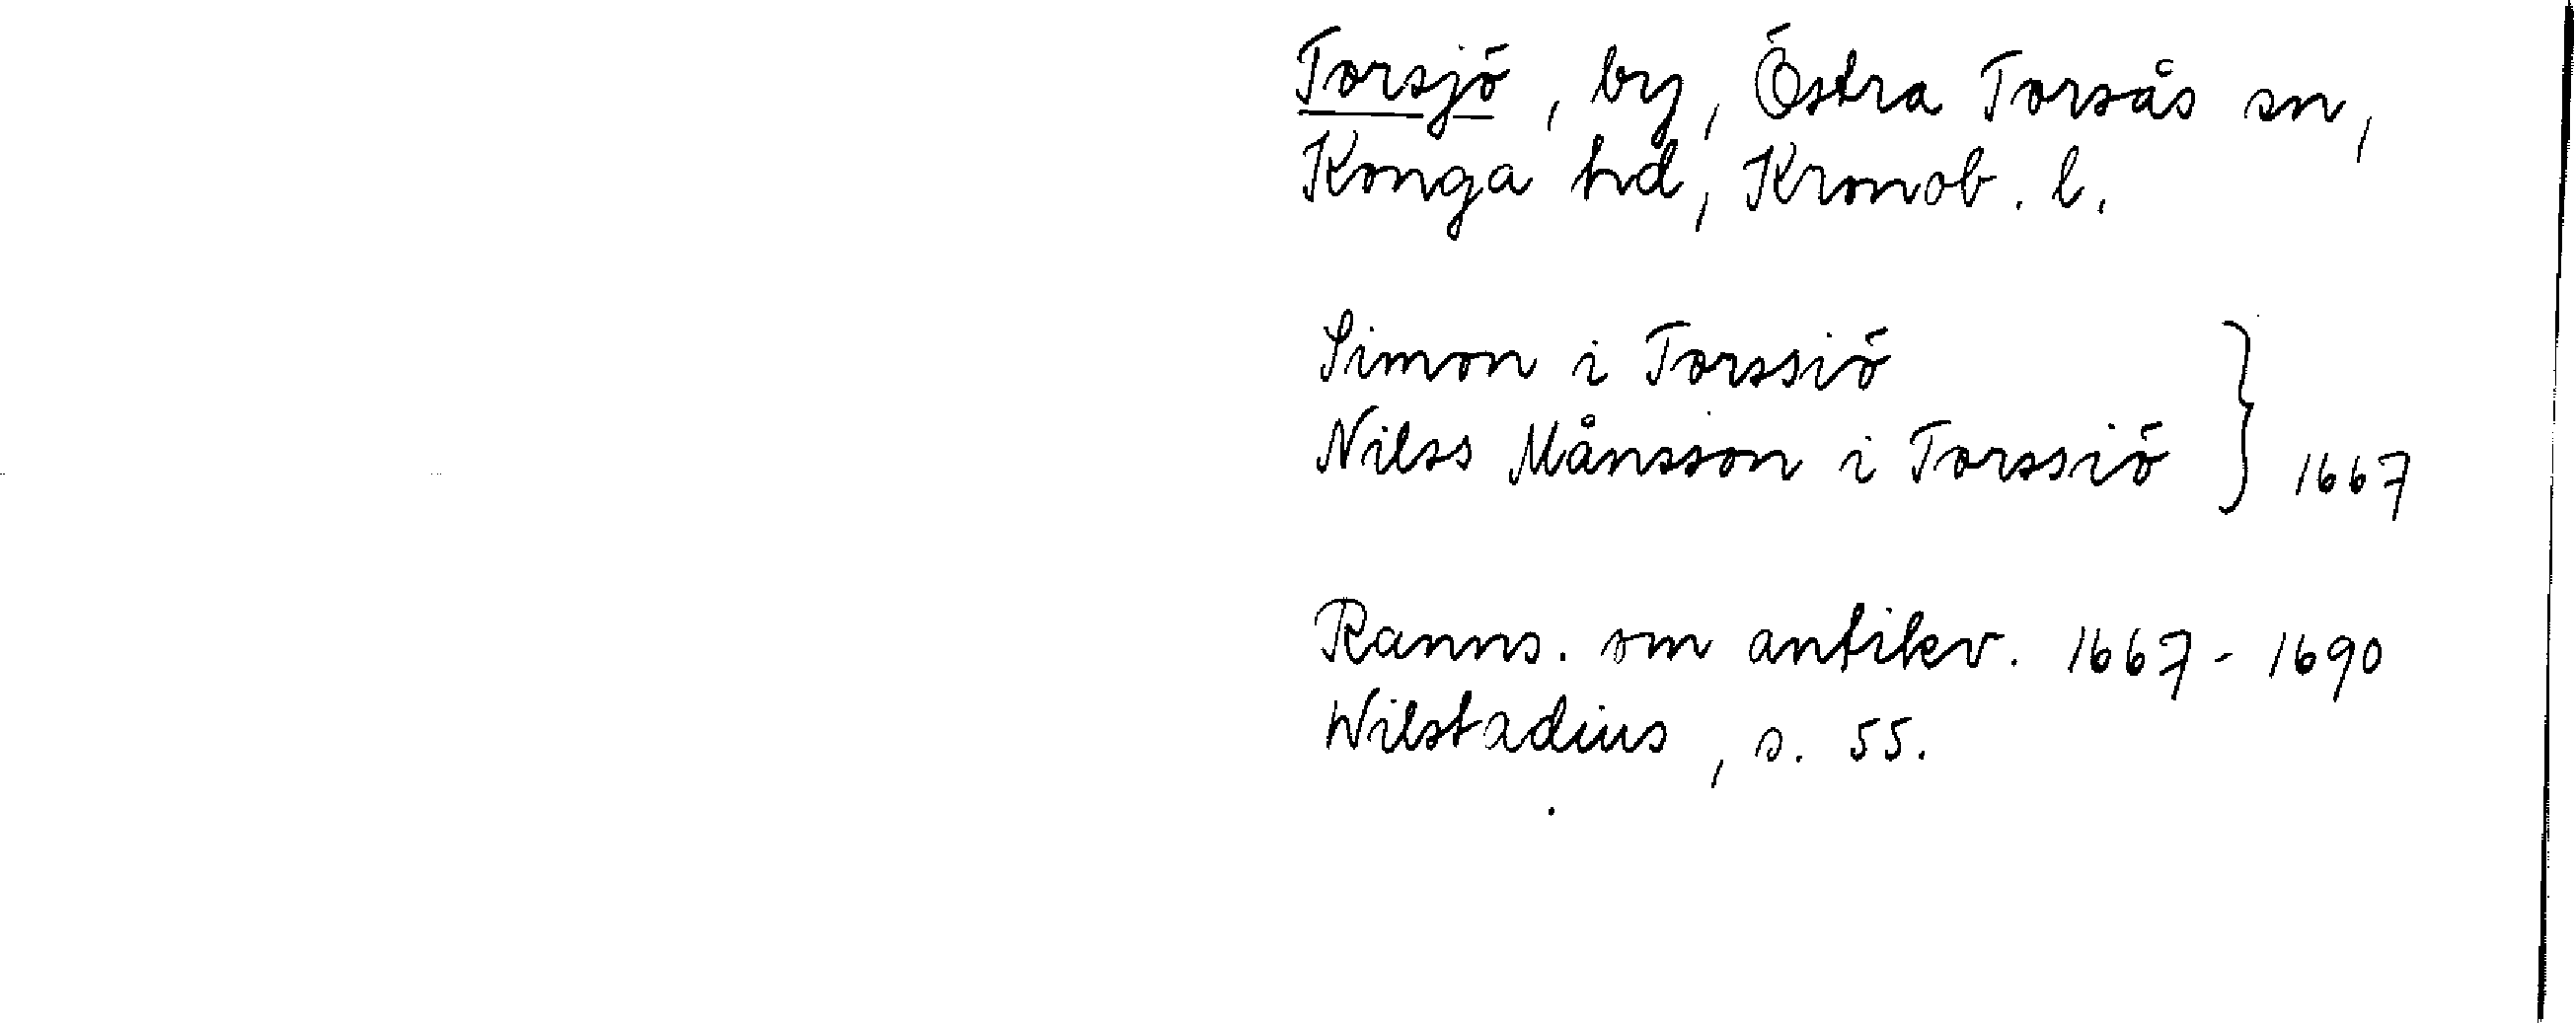 Torsjö, by, Östra Torsås sn,
Konga hd, Kronob. l.
Simon i Torssiö
Nilss Månsson i Torssiö } 1667
Ranns. om antikv. 1667-1690
Wilstadius, s. 55.